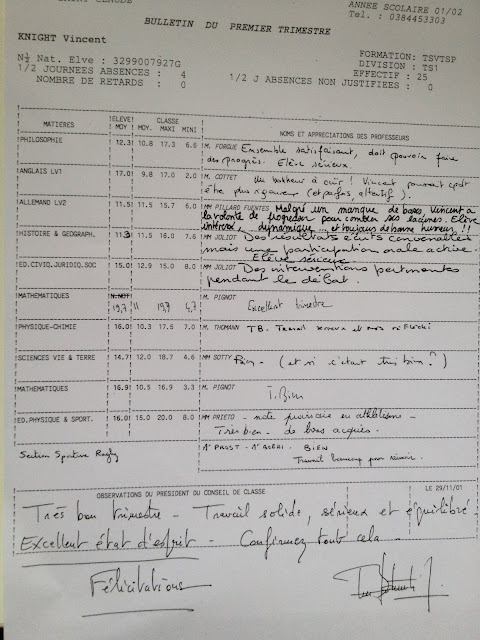 SAINT CLAUDE
ANNEE SCOLAIRE 01/02
Tel. : 0384453303
BULLETIN DU PREMIER TRIMESTRE
KNIGHT Vincent
N½ Nat. Elve : 3299007927G
1/2 JOURNEES ABSENCES : 4
NOMBRE DE RETARDS : 0
FORMATION: TSVTSP
DIVISION : TS1
EFFECTIF : 25
1/2 J ABSENCES NON JUSTIFIEES : 0
MATIERES ELEVE MOY CLASSE MOY. MAXI MINI NOMS ET APPRECIATIONS DES PROFESSEURS
PHILOSOPHIE 12.3 10.8 17.3 6.0 M. FORGUE Ensemble satisfaisant, doit pouvoir faire
des progrès. Elève sérieux.
ANGLAIS LV1 17.0 9.8 17.0 2.0 M. COTTET Vincent pourrait
être plus rigoureux (et parfois, attentif).
ALLEMAND LV2 11.5 11.5 15.7 6.0 MM PILLARD FUENTES Malgré un manque de bases, Vincent a
la volonté de progresser pour combler ses lacunes. Elève
dynamique ... et toujours de bonne humeur !!
HISTOIRE & GEOGRAPH. 11.3 11.5 16.0 7.6 MM JOLIOT Des résultats écrits convenables
mais une participation orale active.
Elève sérieux
ED.CIVIQ.JURIDIQ.SOC 15.0 12.9 15.0 8.0 MM JOLIOT Des interventions pertinentes
pendant le débat.
MATHEMATIQUES N.NOT M. PIGNOT
19,7 11 19,7 4,7 Excellent trimestre
PHYSIQUE-CHIMIE 16.0 10.3 17.5 7.0 M. THOMANN TB. Travail sérieux et réfléchi
SCIENCES VIE & TERRE 14.7 12.0 18.7 4.6 MM SOTTY Bien - (et si c'était très bien ?)
MATHEMATIQUES 16.9 10.5 16.9 3.3 M. PIGNOT
T. Bien
ED.PHYSIQUE & SPORT. 16.0 15.0 20.0 8.0 MM PRIETO - note provisoire en athlétisme -
Très bien - de bons acquis.
Section Sportive Rugby BIEN
Travail beaucoup pour réussir.
OBSERVATIONS DU PRESIDENT DU CONSEIL DE CLASSE LE 29/11/01
Très bon trimestre - Travail solide, sérieux et équilibré
Excellent état d'esprit - Confirmez tout cela -
Félicitations